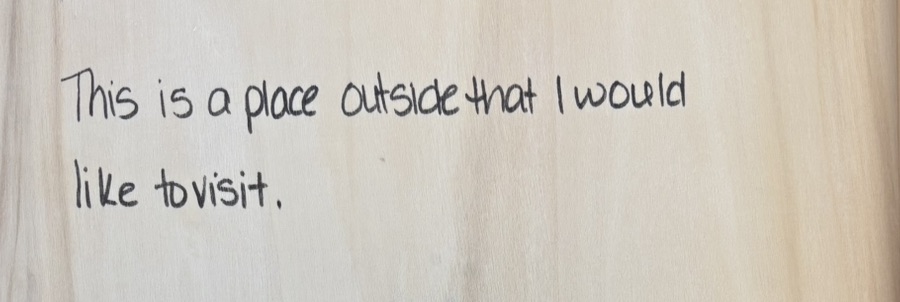 This is a place outside that I would
like to visit.